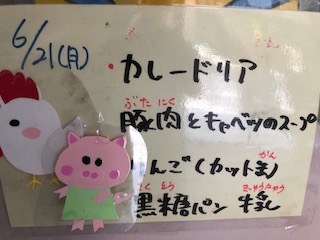 6/21(月)
・カレードリア
ぶた にく
豚肉とキャベツのスープ
んご(カット
かん
とう ぎゅうにゅう
黒糖パン 牛乳